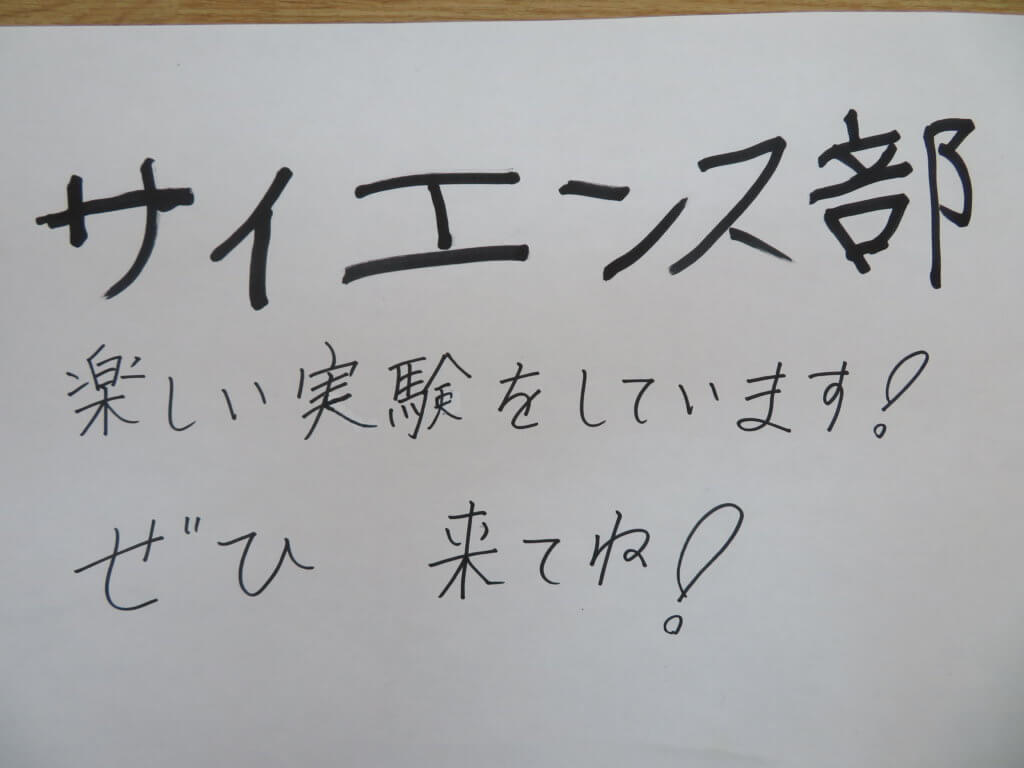 サイエンス部
楽しい実験をしています!
ぜひ 来てね!